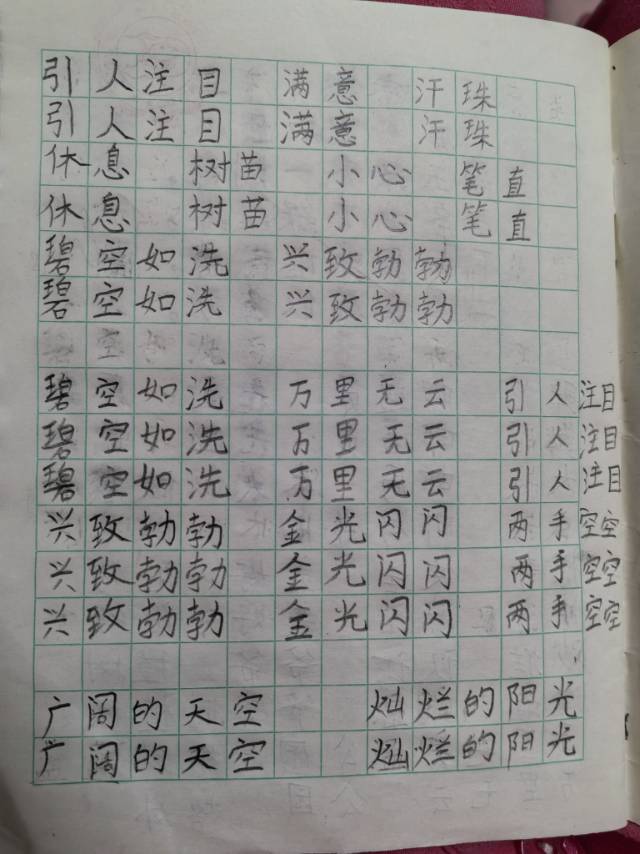 引人注目 满意 汗珠
引人注目 满意 汗珠
休息 树苗 小心 笔直
休息 树苗 小心 笔直
碧空如洗 兴致勃勃
碧空如洗 兴致勃勃
碧空如洗 万里无云 引人注目
碧空如洗 万里无云 引人注目
碧空如洗 万里无云 引人注目
兴致勃勃 金光闪闪 两手空空
兴致勃勃 金光闪闪 两手空空
兴致勃勃 金光闪闪 两手空空
广阔的天空 灿烂的阳光
广阔的天空 灿烂的阳光